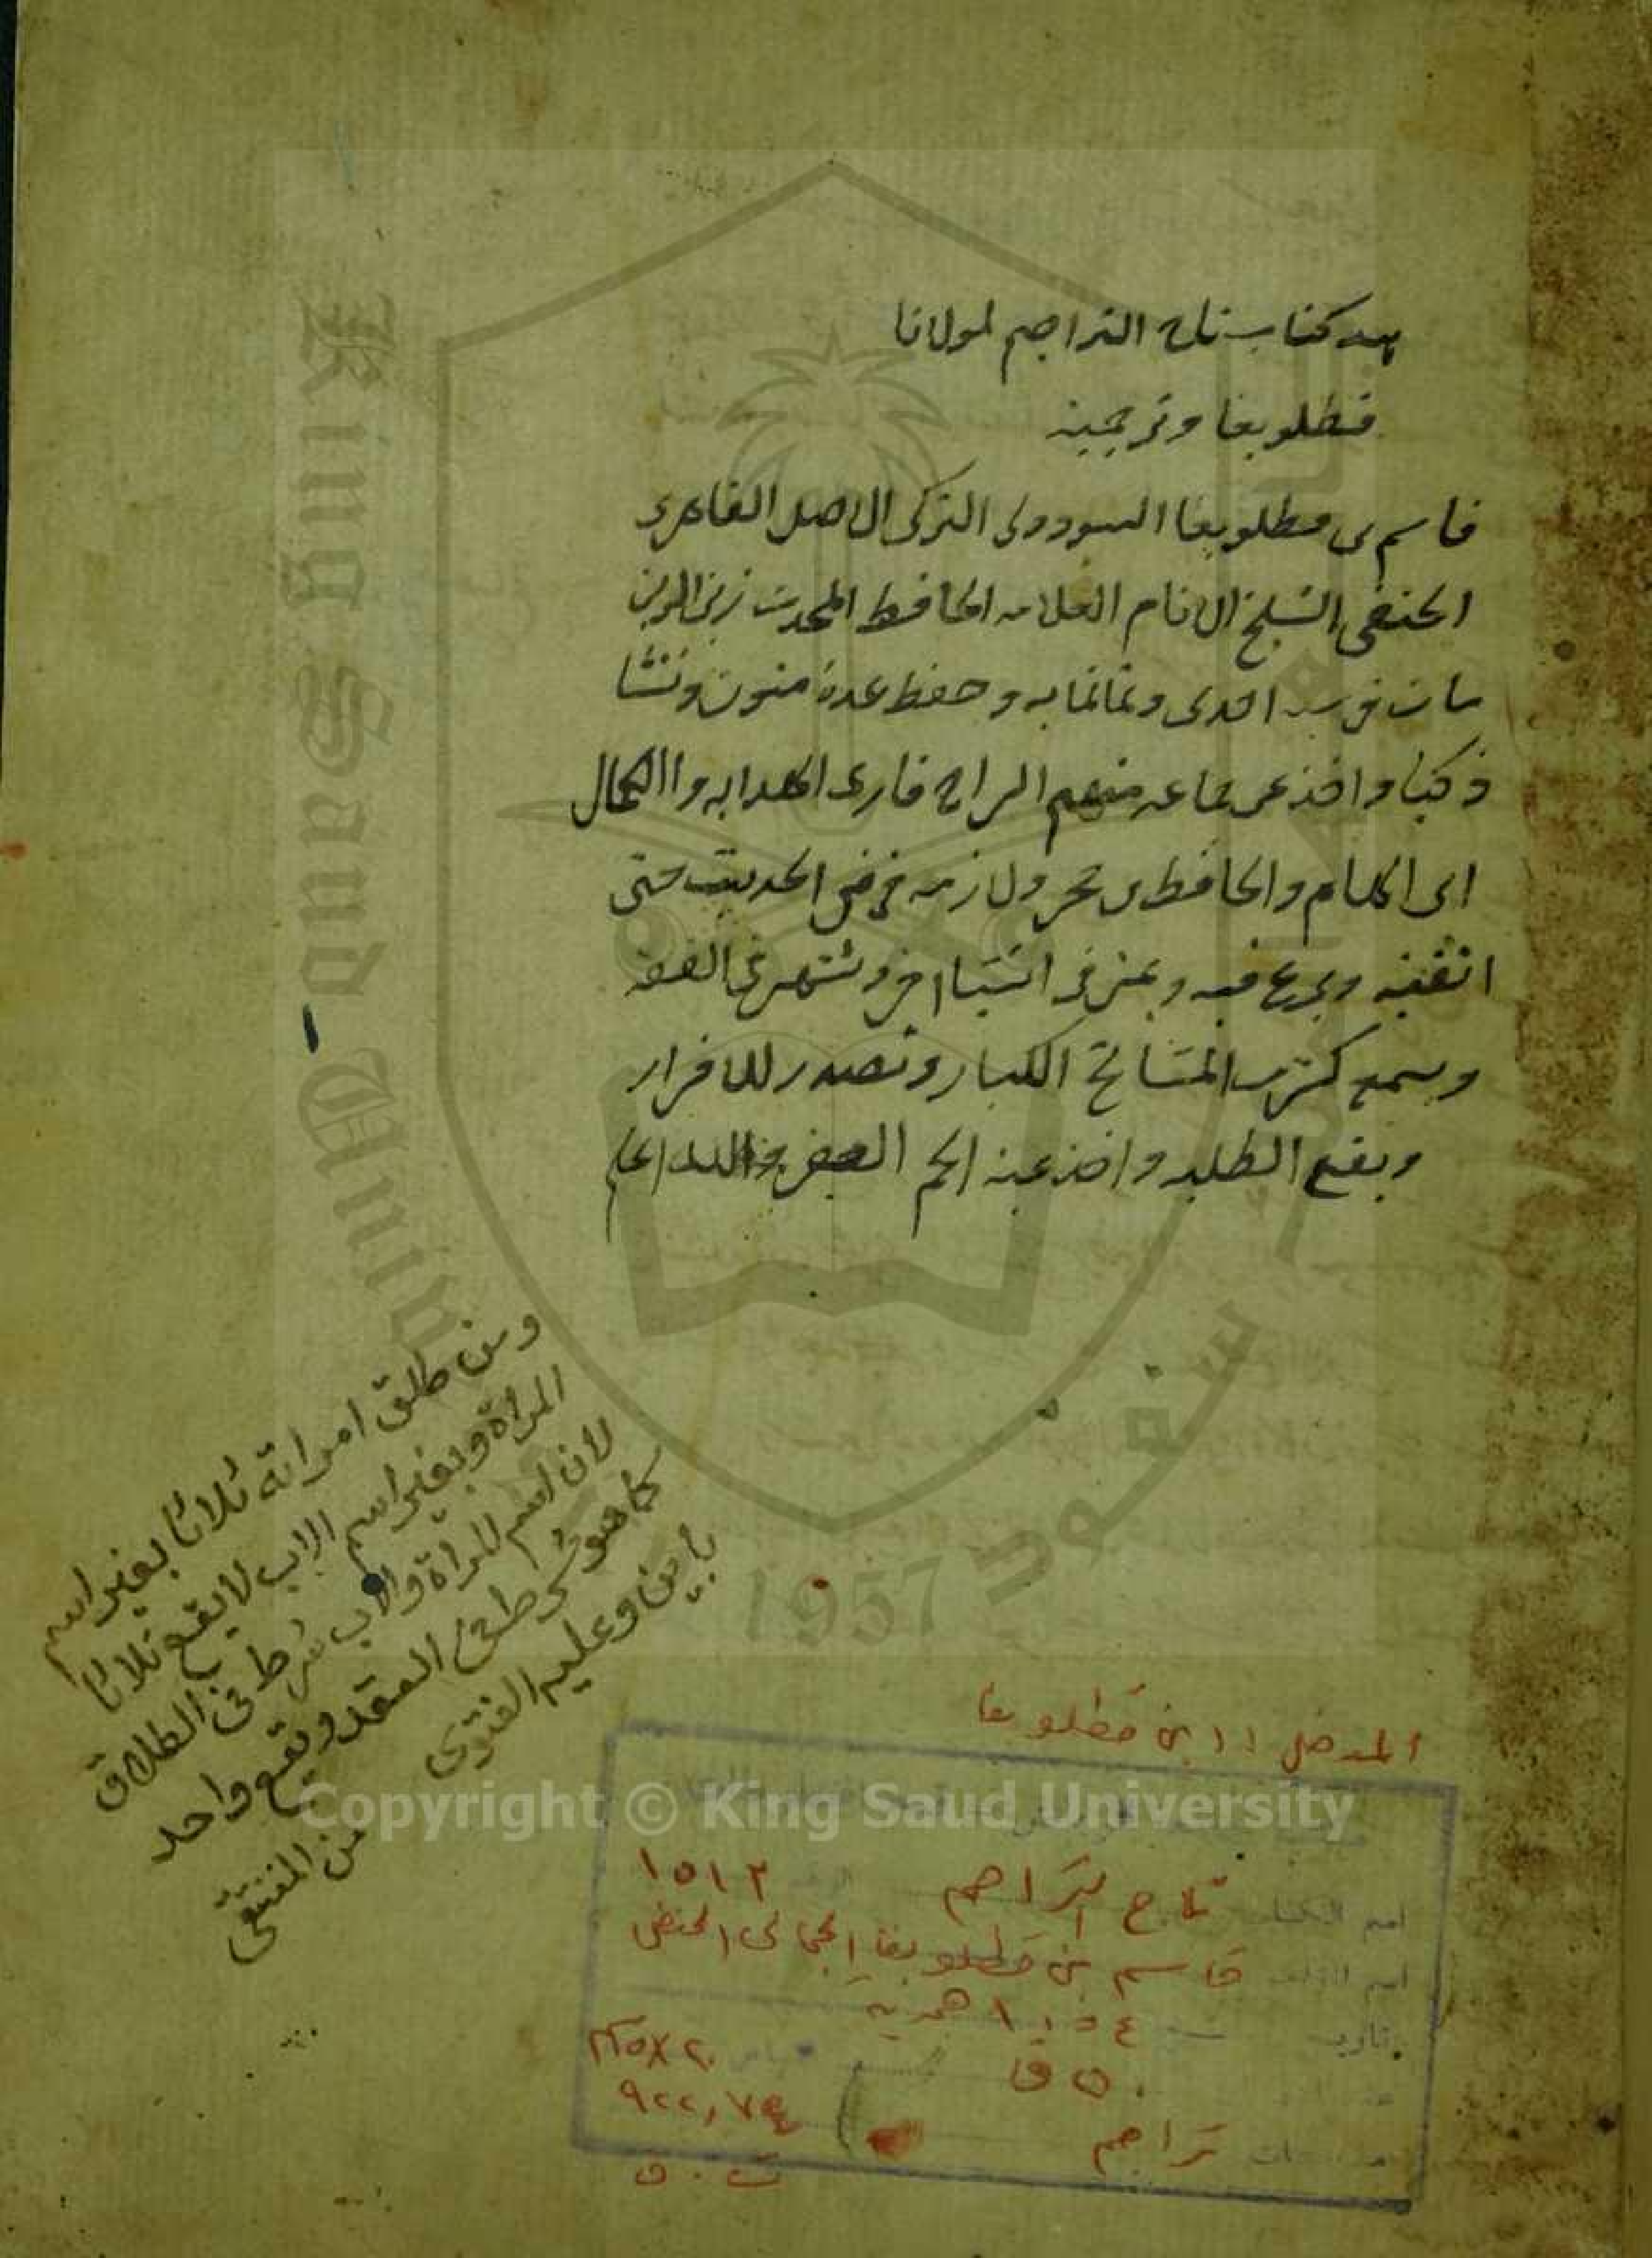 هذا كتاب تاج التراجم لمولانا
قطلوبغا وترجمته
قاسم بن قطلوبغا السودونى التركى الاصل القاهرى
الحنفى الشيخ الامام العلامه الحافظ المحدث زين الدين
مات فى سنه احدى وثمانمايه وحفظ عدة متون ونشا
ذكيا واخذ عن جماعه منهم السراج قارى الهدايه واالكمال
ابن الهمام والحافظ بن حجر ولازمه فى فن الحديث حتى
اتقنه وبرع فيه وتميز فى اشيا اخر وشتهر فى الفقه
وسمع كثير من المشائخ الكبار وتصدر للاقرار
ونفع الطلبه واخذ عنه الجم الغفير والله اعلم
ومن طلق امراته ثلاثا بغير اسم
المراة وبغير اسم الاب لا يقع ثلاثا
لان اسم المراة والاب شرط فى الطلاق
كما هو شرط فى العقد ويقع واحد
باين وعليه الفتوى
من المنتقى
المدخل : ابن قطلوبغا
اسم الكتاب تاج التراجم الرقم ١٥١٢
اسم المؤلف قاسم بن قطلوبغا الجمالى الحنفى
تاريخ ١٠٥٤ هجرية
٥٠ ق
تراجم
٩٢٢,٧
ت . ق
King Saud University
1957
Copyright © King Saud University